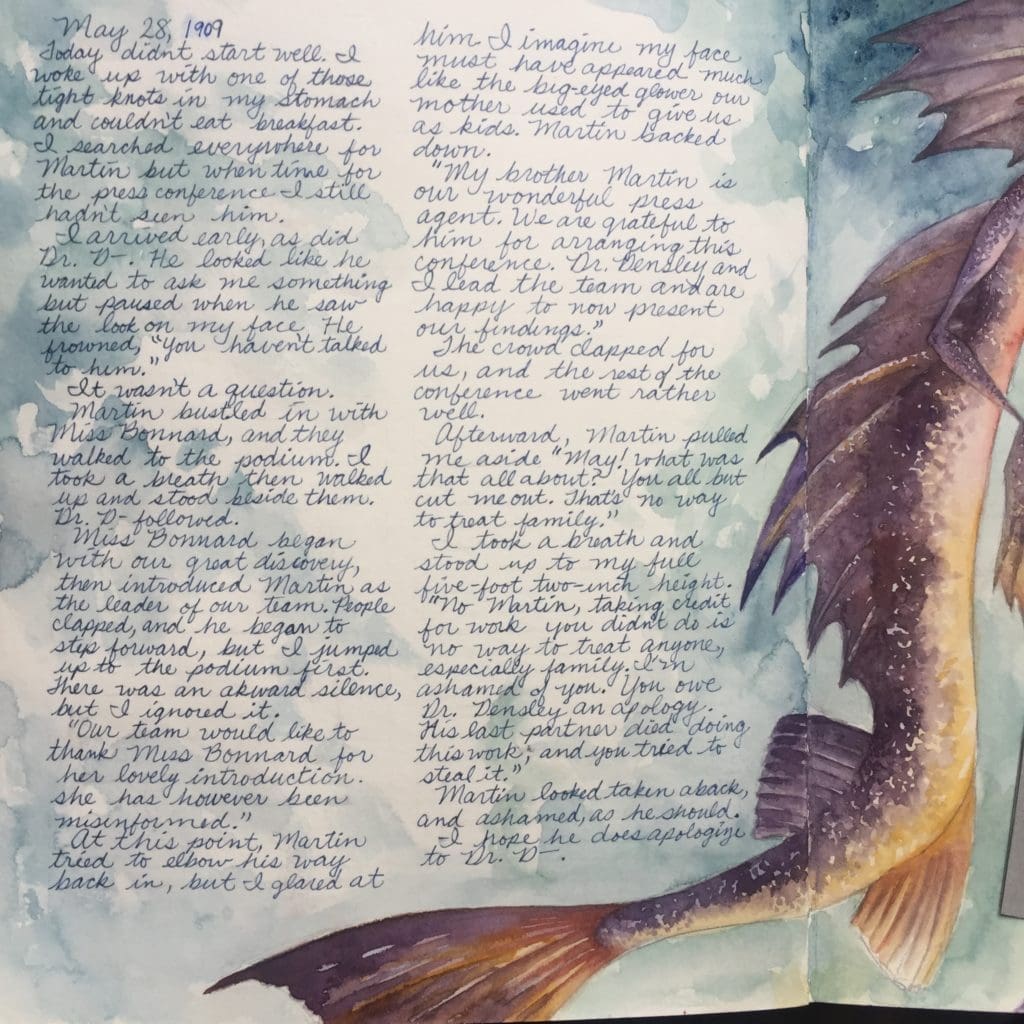 May 28, 1909
Today didn't start well. I
woke up with one of those
tight knots in my stomach
and couldn't eat breakfast.
I searched everywhere for
Martin but when time for
the press conference I still
hadn't seen him.
I arrived early, as did
Dr. D-. He looked like he
wanted to ask me something
but paused when he saw
the look on my face. He
frowned, "You haven't talked
to him."
It wasn't a question.
Martin bustled in with
Miss Bonnard, and they
walked to the podium. I
took a breath then walked
up and stood beside them.
Dr. D- followed.
Miss Bonnard began
with our great discovery,
then introduced Martin as
the leader of our team. People
clapped, and he began to
step forward, but I jumped
up to the podium first.
There was an akward silence,
but I ignored it.
"Our team would like to
thank Miss Bonnard for
her lovely introduction.
she has however been
misinformed."
At this point, Martin
tried to elbow his way
back in, but I glared at
him I imagine my face
must have appeared much
like the big-eyed glower our
mother used to give us
as kids. Martin backed
down.
"My brother Martin is
our wonderful press
agent. We are grateful to
him for arranging this
conference. Dr. Densley and
I lead the team and are
happy to now present
our findings."
The crowd clapped for
us, and the rest of the
conference went rather
well.
Afterward, Martin pulled
me aside "May! what was
that all about? You all but
cut me out. That's no way
to treat family."
I took a breath and
stood up to my full
five-foot two-inch height.
"No Martin, taking credit
for work you didn't do is
no way to treat anyone,
especially family. I'm
ashamed of you. You owe
Dr. Densley an apology.
His last partner died doing
this work; and you tried to
steal it."
Martin looked taken aback,
and ashamed, as he should.
I hope he does apologize
to Dr. D-.